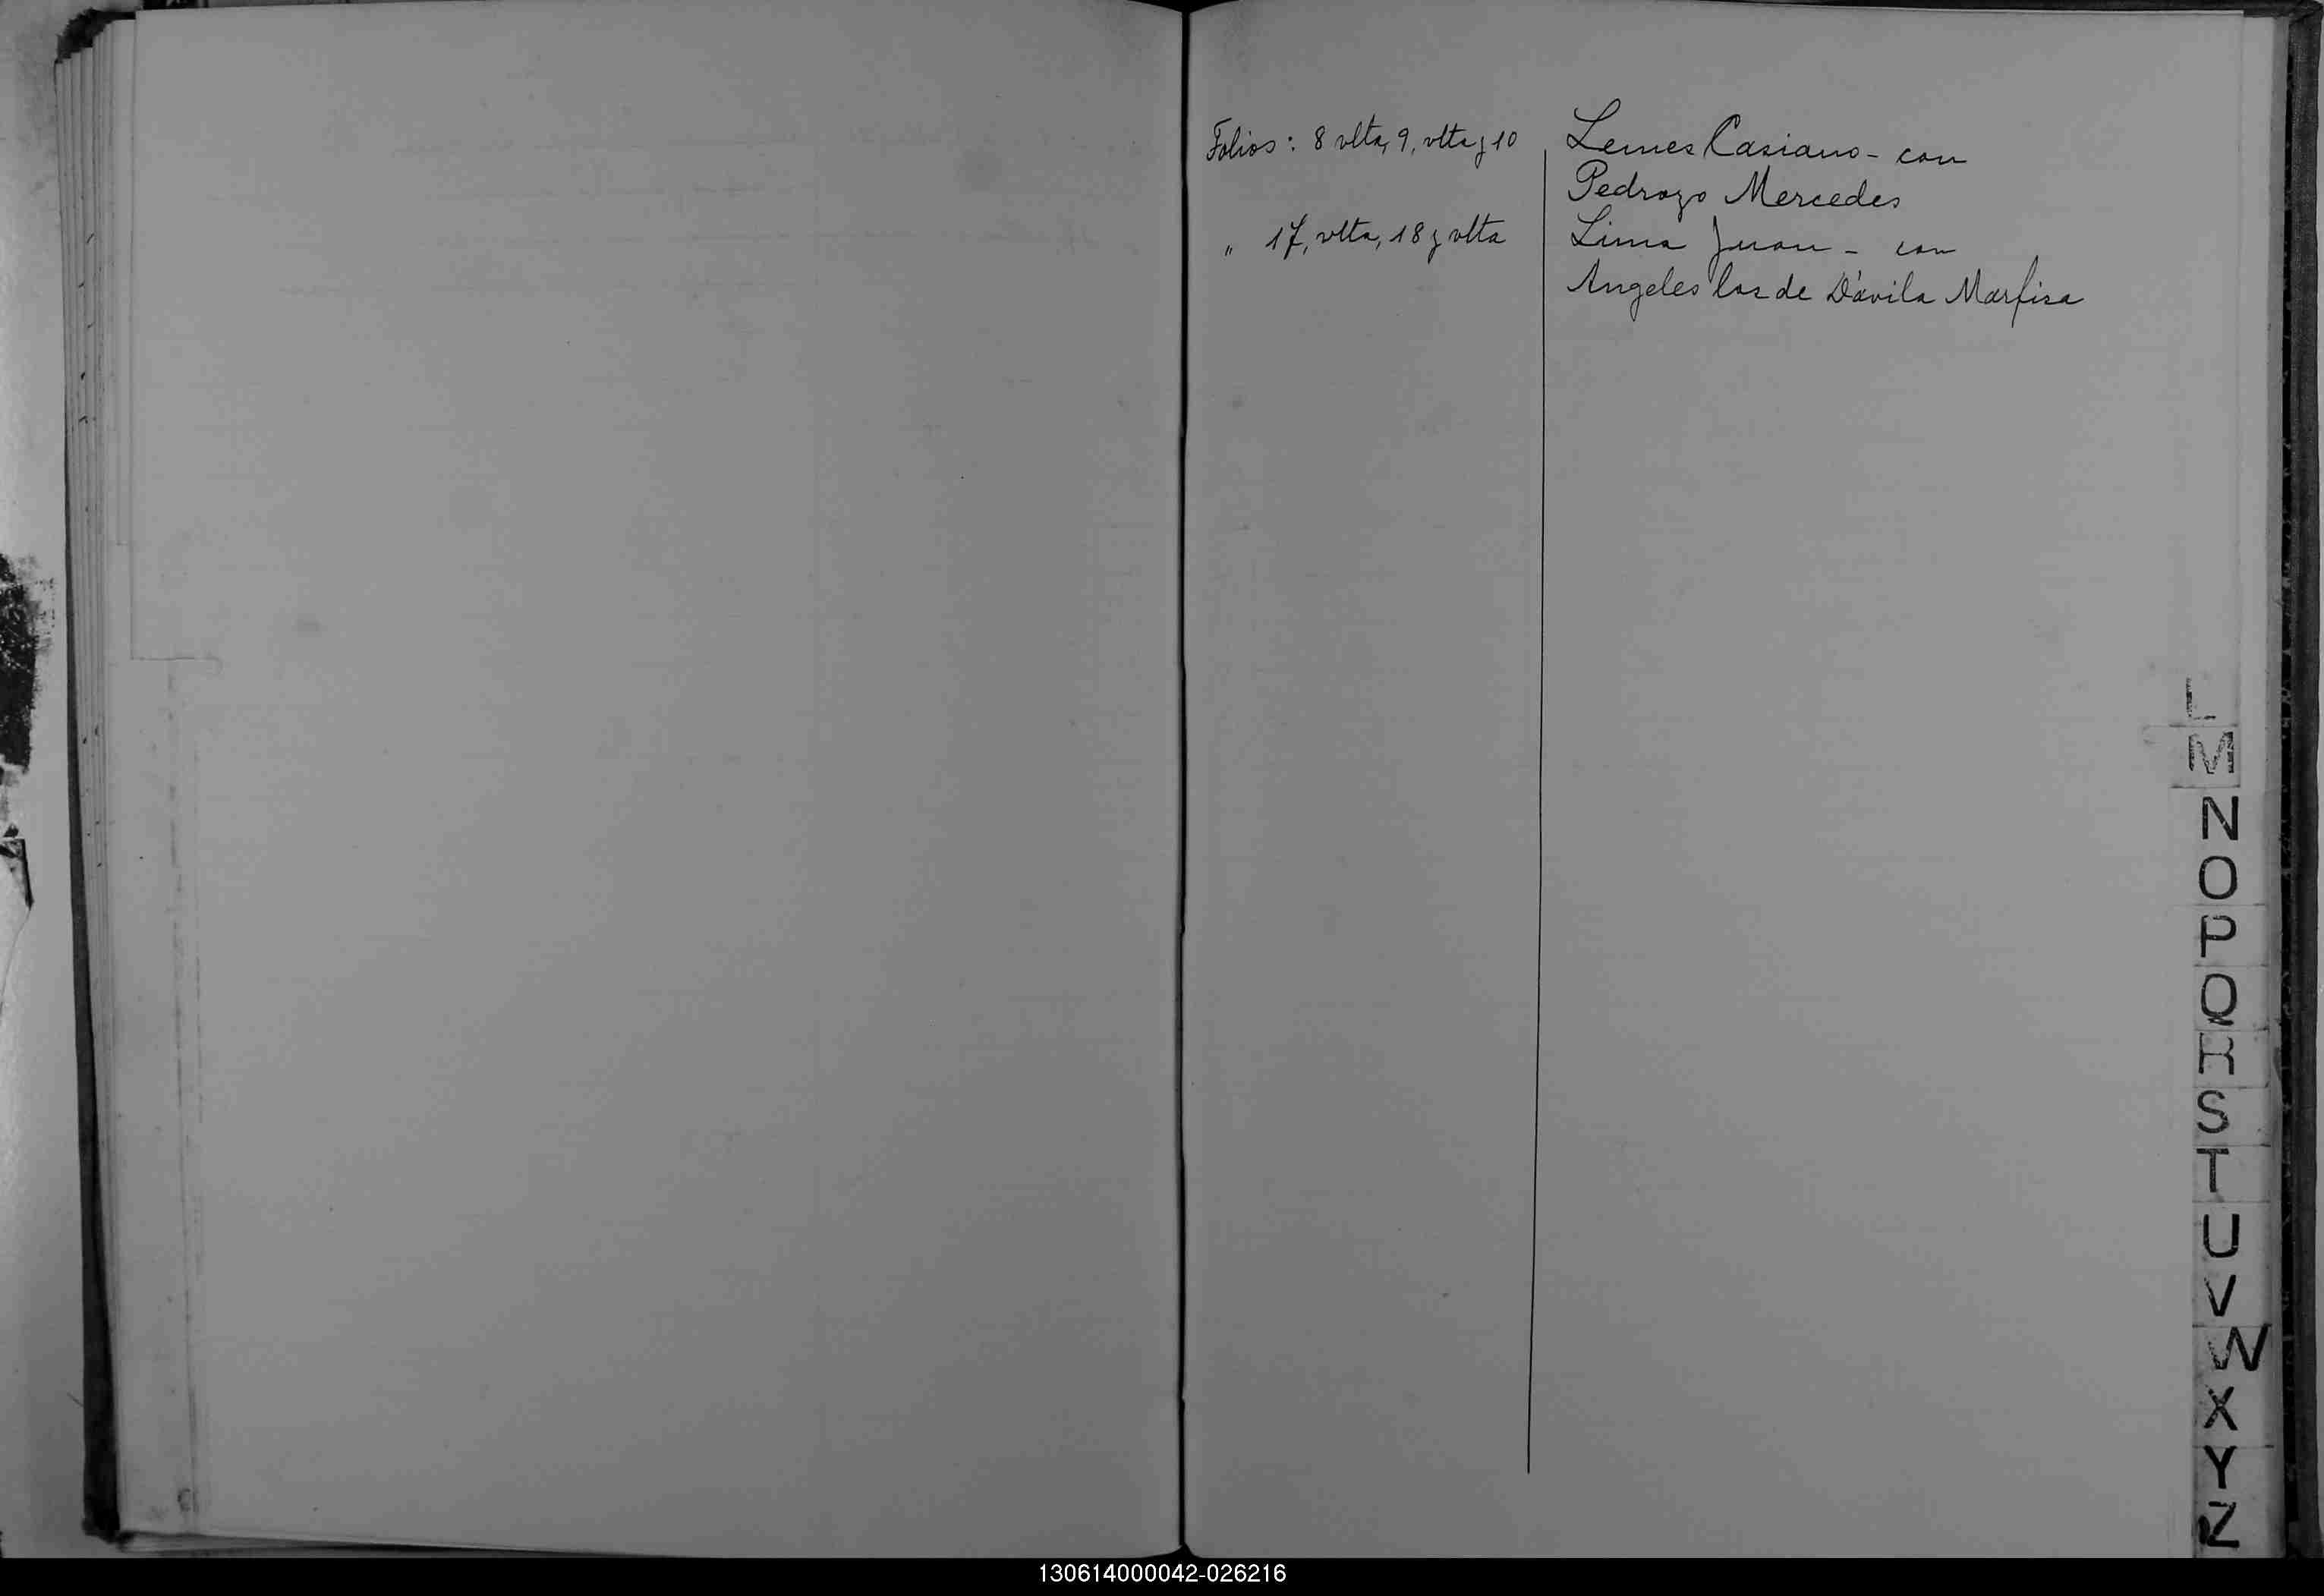 Folios: 8 vlta, 9, vlta y 10
Lemes Casiano - con
Pedrozo Mercedes
" 17, vlta, 18 y vlta
Lima Juan - con
Angeles los de Dávila Marfisa
L
M
N
O
P
Q
R
S
T
U
V
W
X
Y
Z
130614000042-026216